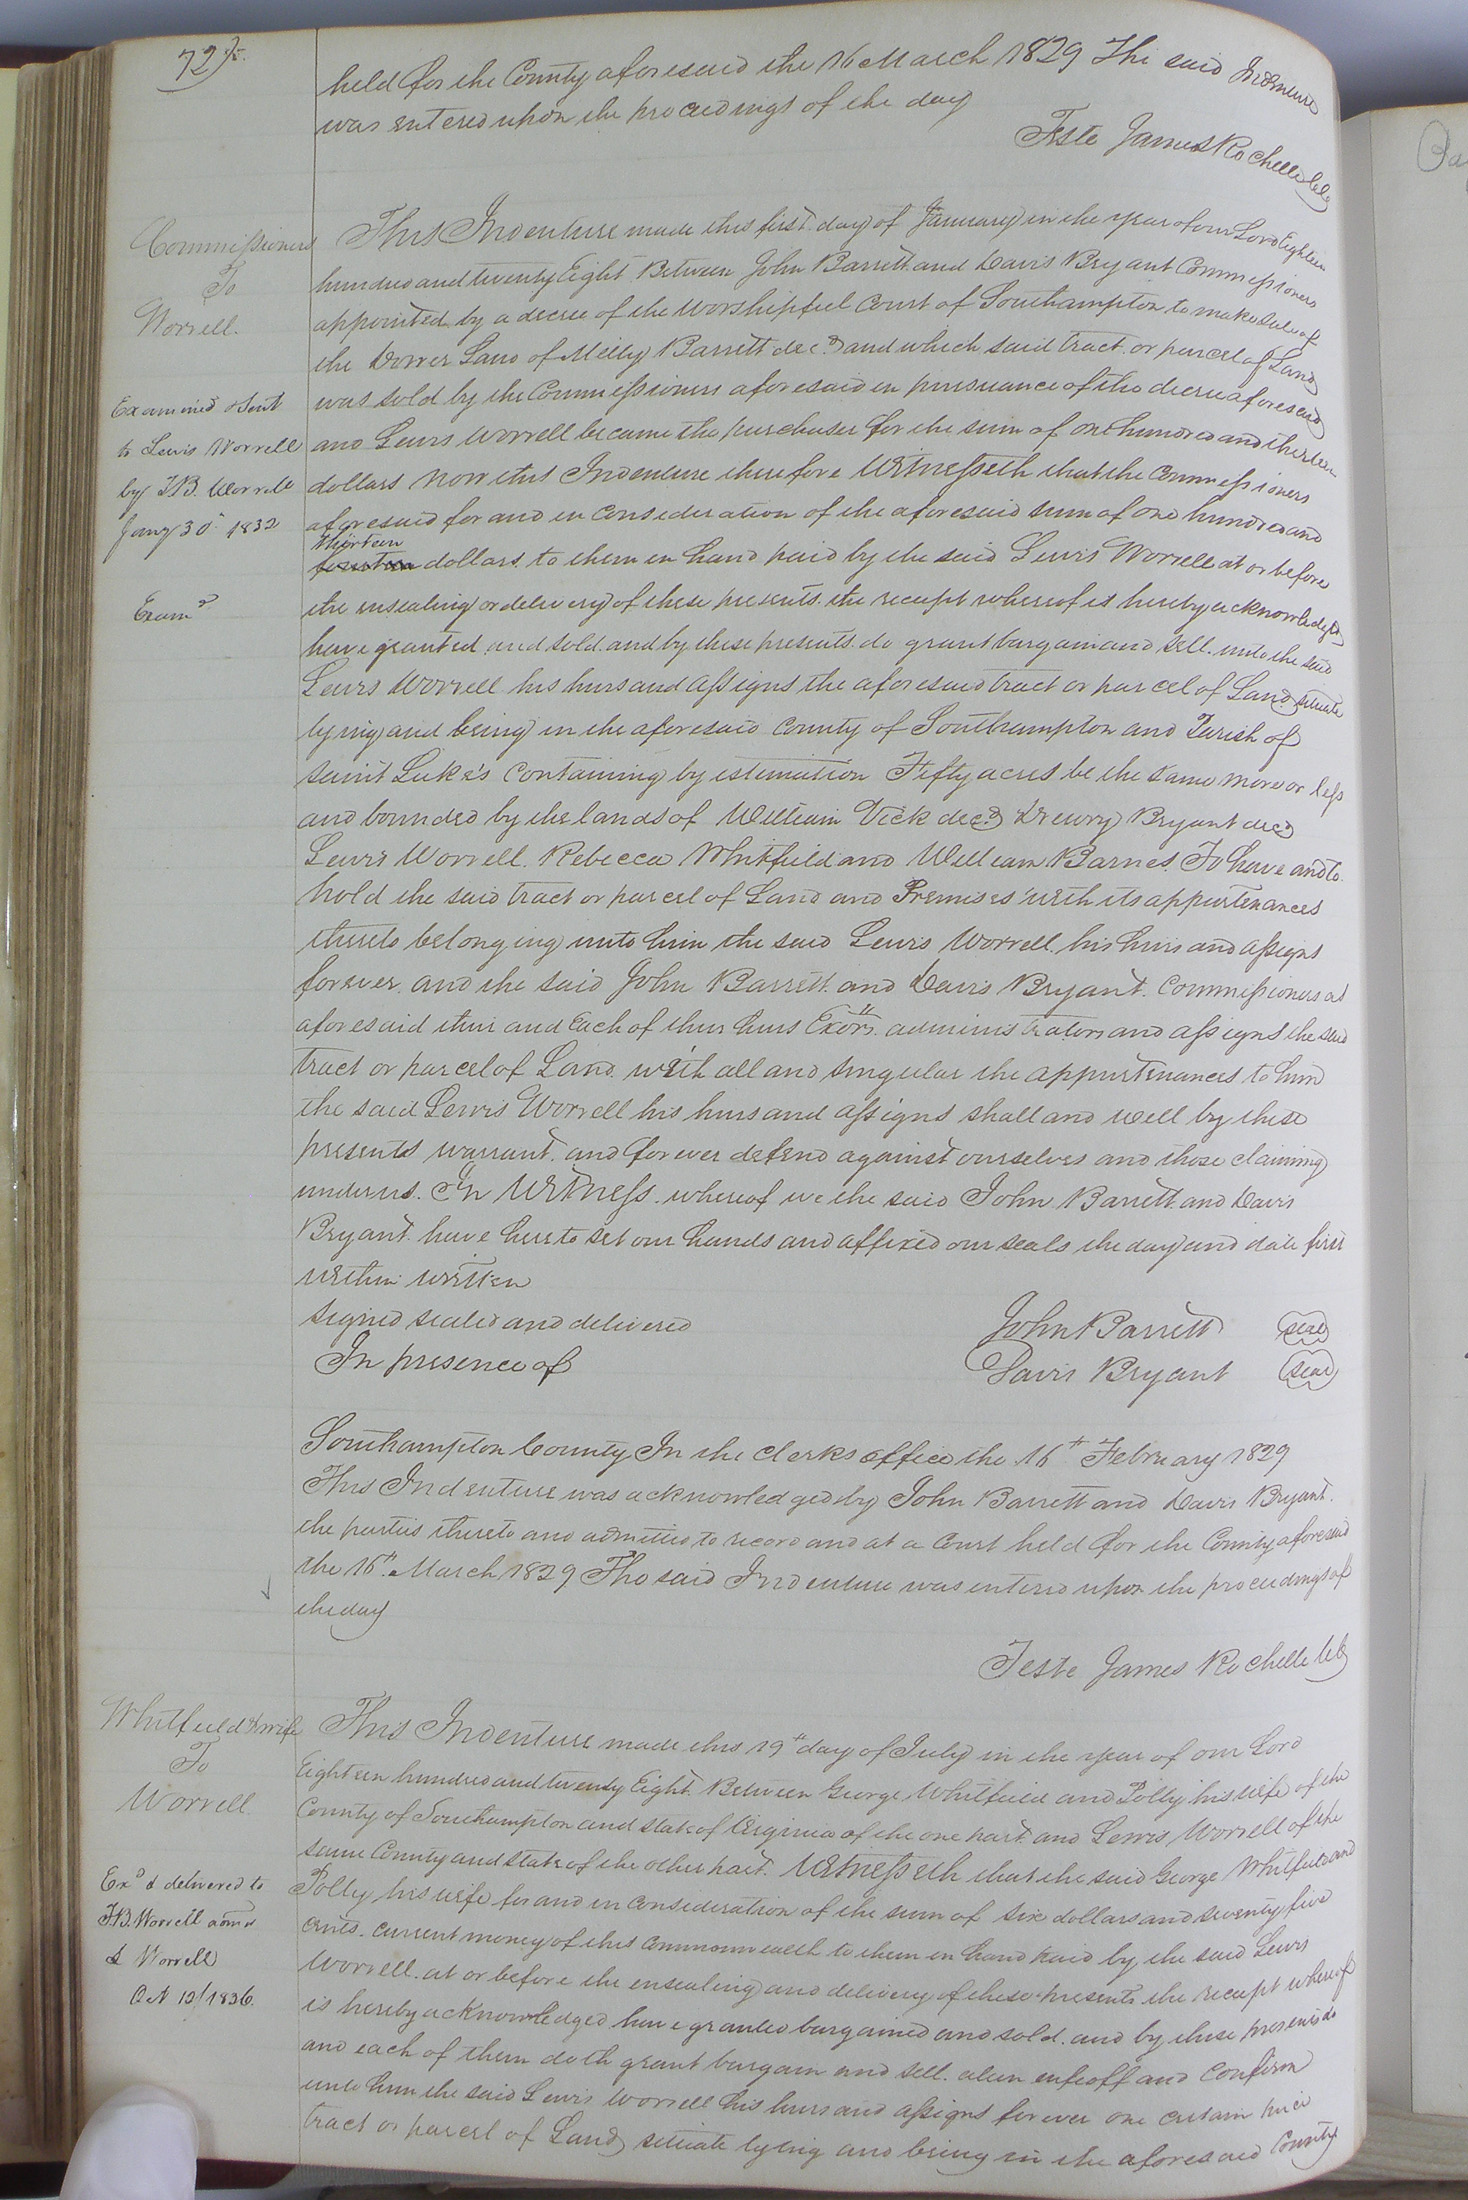 72
held for the County aforesaid the 16 March 1829 The said Indenture
was entered upon the proceedings of the day
Teste James Rochelle Clk
Commissioners
To
Worrell.
Examined & sent
to Lewis Worrell
by Worrell
Jany 30th 1832
Examd
This Indenture made this first day of January in the year of our Lord Eighteen
hundred and twenty Eight Between John Barrett and Davis Bryant Commissioners
appointed by a decree of the Worshipful Court of Southampton to make sale of
the Dower Land of Milly Barrett decd and which said tract or parcel of Land
was sold by the Commissioners aforesaid in pursuance of the decree aforesaid
and Lewis Worrell became the purchaser for the sum of one hundred and thirteen
dollars Now this Indenture therefore Witnesseth that the Commissioners
aforesaid for and in consideration of the aforesaid sum of one hundred and
thirteen
fourteen dollars to them in hand paid by the said Lewis Worrell at or before
the ensealing or delivery of these presents the receipt whereof is hereby acknowledged
have granted and sold and by these presents do grant bargain and sell unto the said
Lewis Worrell his heirs and assigns the aforesaid tract or parcel of Land situate
lying and being in the aforesaid County of Southampton and Parish of
Saint Luke's containing by estimation Fifty acres be the same more or less
and bounded by the lands of William Vick decd Drewry Bryant decd
Lewis Worrell. Rebecca Whitfield and William Barnes. To have and to
hold the said tract or parcel of Land and Premises with its appurtenances
thereto belonging unto him the said Lewis Worrell his heirs and assigns
forever. and the said John Barrett and Davis Bryant. Commissioners as
aforesaid their and Each of their heirs Exors. administrators and assigns the said
tract or parcel of Land with all and singular the appurtenances to him
the said Lewis Worrell his heirs and assigns shall and will by these
presents warrant and forever defend against ourselves and those claiming
under us. In Witness whereof we the said John Barrett and Davis
Bryant have hereto set our hands and affixed our seals the day and date first
within written
signed sealed and delivered
In presence of
John Barrett seal
Davis Bryant seal
Southampton County In the Clerks office the 16th February 1829
This Indenture was acknowledged by John Barrett and Davis Bryant.
the parties thereto and admitted to record and at a Court held for the County aforesaid
the 16th March 1829 The said Indenture was entered upon the proceedings of
the day
Teste James Rochelle Clk
Whitfield & wife
To
Worrell
Exd & delivered to
Worrell admr
Worrell
Oct 19/1836.
This Indenture made this 19th day of July in the year of our Lord
Eighteen hundred and twenty Eight Between George Whitfield and Polly his wife of the
County of Southampton and state of Virginia of the one part and Lewis Worrell of the
same County and state of the other part. Witnesseth that the said George Whitfield and
Polly his wife for and in consideration of the sum of six dollars and seventy five
cents. current money of this commonwealth to them in hand paid by the said Lewis
Worrell at or before the ensealing and delivery of these presents the receipt whereof
is hereby acknowledged have granted bargained and sold and by these presents do
and each of them doth grant bargain and sell. alien enfeoff and Confirm
unto him the said Lewis Worrell his heirs and assigns forever one certain piece
tract or parcel of Land situate lying and being in the aforesaid County